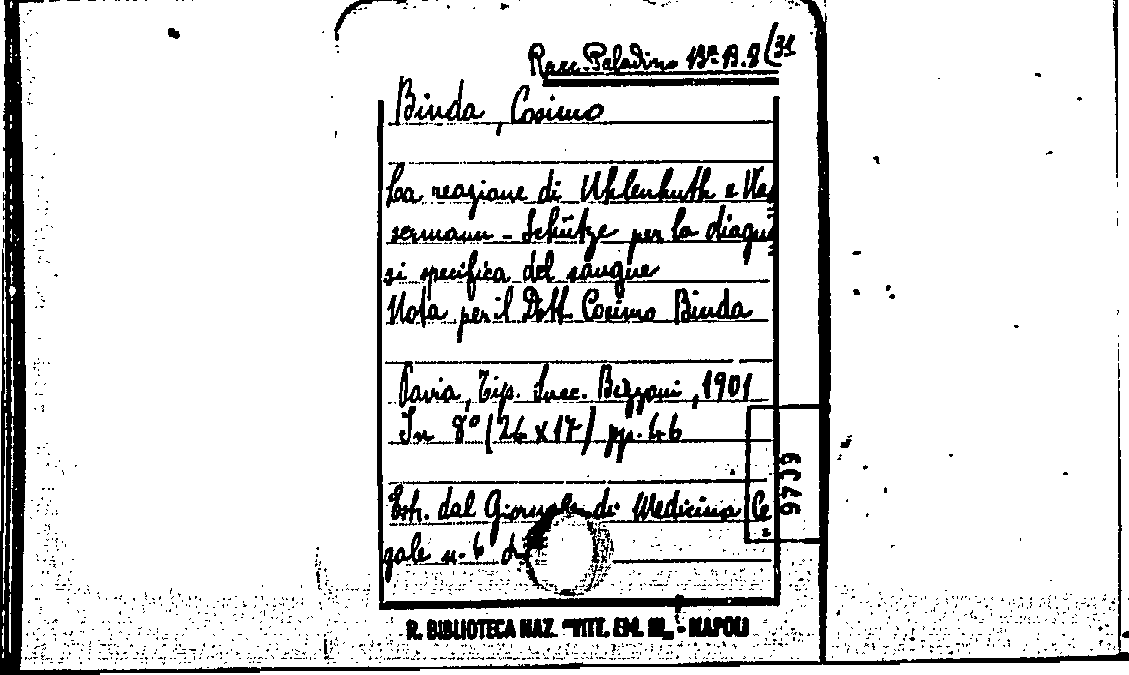 Racc. Paladino B.ª A. 8 (31
Binda, Cosimo
La reazione di Uhlenhuth e Was
sermann - Schütze per la diagno
si specifica del sangue
Nota per il Dott. Cosimo Binda
Pavia, Tip. Succ. Bizzoni, 1901
In 8º (24 x 17) pp. 46
Estr. dal Giornale di Medicina Le
gale n. 6
R. BIBLIOTECA NAZ. "VITT. EM. III" - NAPOLI